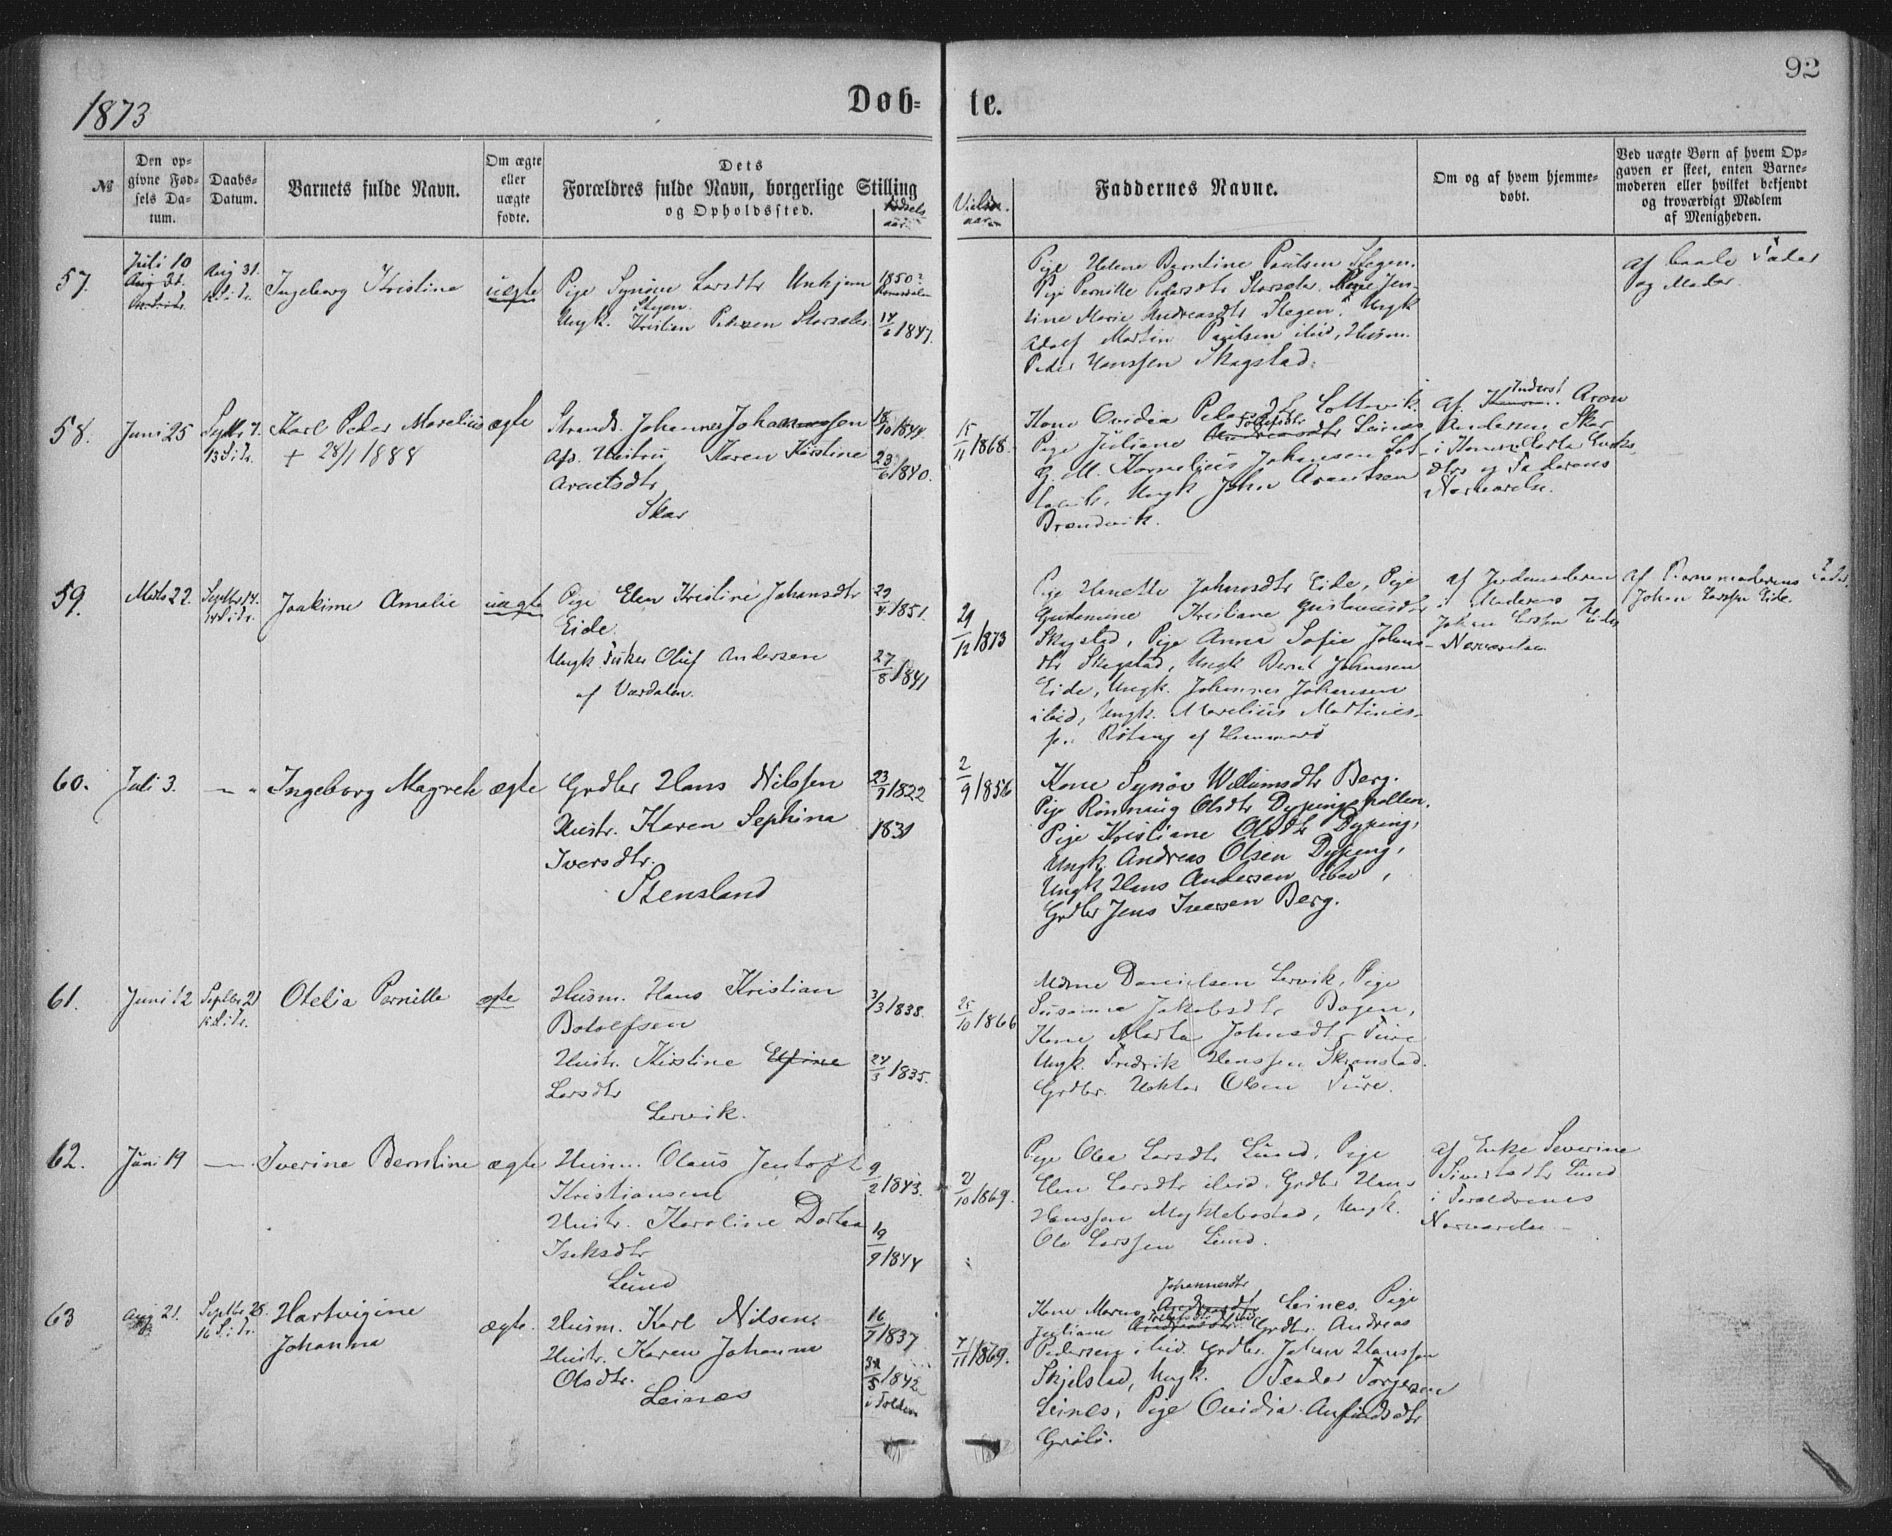 1873
Døb-
te.
92
№
Den op-
givne Fød-
sels Da-
tum.
Daabs-
Datum.
Barnets fulde Navn.
Om ægte
eller
uægte
fødte.
Dets
Forældres fulde Navn, borgerlige Stilling
og Opholdssted.
Fødsels
aar.
Vielses
aar
Faddernes Navne.
Om og af hvem hjemme-
døbt.
Ved uægte Børn af hvem Op-
gaven er skeet, enten Barne-
moderen eller hvilket bekjendt
og troværdigt Medlem
af Menigheden.
57.
Juli 10
Aug 31.
Ingeborg Kristine
uægte
Pige Synøve Larsdtr Unhjem
Skjen
Ungk. Kristian Pedersen Storsæter
1850?
Romsdalen
14/6 1847.
Pige Helene Berntine Paulsen Skogen.
Pige Pernille Pedersdtr Storsæter. Pige Jen-
sine Marie Andreasdtr Skogen. Ungk
Adolf Martin Paulsen ibid, Husm.
Peder Hanssen Skagstad.
Af baade Fader
og Moder.
58.
Juni 25
Septbr 7.
13 S. i Tr.
Karl Peder Marelius
+ 28/1 1888
ægte
Strands. Johannes Johannessen
og Hustru Karen Kirstine
Arentsdtr
Skar
18/10 1844
23/6 1840.
15/11 1868.
Kone Ovidia Pedersdtr Lottevik.
Pige Juliane Andreasdtr Leines
G. M. Kornelius Johansen Lot-
tevik, Ungk John Arentsen
Brændvik.
Af Inderst Aron
Andersen Skar
i Konen
dtrs og Faderens
Nærværelse.
59.
Marts 22.
Septbr 14.
14 S. i Tr.
Joakime Amalie
uægte
Pige Elen Kristine Johansdtr
Eide.
Ungk Fisker Oluf Andersen
af Værdalen.
29/4 1851.
27/8 1841
29/12 1873
Pige Hanette Johansdtr Eide, Pige
Gustavine Kristiane Gustavusdtr
Skagstad, Pige Anna Sofie Johans-
dtr Skagstad, Ungk Bernt Johansen
Eide, Ungk. Johannes Johansen
ibid, Ungk. Marelius Martinus-
sen Røtang af Hammerø
af Jordemoderen
i Moderens
Johan Larssen Eides
Nærværelse
Af Barnemoderens Fader
Johan Larssen Eide.
60.
Juli 3.
— "
Ingeborg Magrete
ægte
Grdbr Hans Nilssen
Hustr. Karen Sephina
Iversdtr.
Stensland
23/9 1822
1831
2/9 1856
Kone Synøv Willumsdtr Berg.
Pige Rønnaug Olsdtr Dypingspollen.
Pige Kristiane Olsdtr Dyping,
Ungk Andreas Olsen Dyping,
Ungk Hans Andersen ibid,
Grdbr Jens Iversen Berg.
61.
Juni 12
Septbr 21
15 S. i Tr.
Otelia Pernille
ægte
Husm. Hans Kristian
Botolfsen
Hustr. Kirstine Elfine
Larsdtr
Lervik.
3/3 1838.
24/3 1835.
25/10 1866
Mdme Danielsen Lervik, Pige
Susanna Jakobsdtr Bogen,
Kone Marta Johnsdtr Fure
Ungk. Fredrik Hanssen Skrenstad.
Grdbr. Hektor Olsen Fure.
62.
Juni 19
—
Iverine Berntine
ægte
Husm. Olaus Jentoft
Kristiansen
Hustr. Karoline Dortea
Isaksdtr
Lund
9/2 1843.
19/9 1844
21/10 1869.
Pige Olea Larsdtr Lund, Pige
Elen Larsdtr ibid. Grdbr Hans
Hanssen Myklebostad, Ungk.
Ole Larssen Lund.
af Enke Severine
Sivertsdtr Lund
i Forældrenes
Nærværelse
63
Aug 21.
Septbr 28.
16 S. i Tr.
Hartvigine
Johanna
ægte.
Husm. Karl Nilsen.
Hustr. Karen Johanne
Olsdtr.
Leines
16/7 1837
31/5 1842
i Folden
7/11 1869.
Johannesdtr
Kone Maren Andreasdtr Leines, Pige
Juliane Andreasdtr. Grdbr. Andreas
Pedersen ibid. Grdbr. Johan Hanssen
Skjelstad, Ungk. Teodor Torgersen
Leines, Pige Ovidia Anfindsdtr
Grøtø.